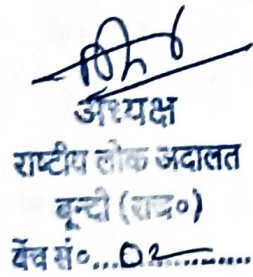 अध्यक्ष
राष्टीय लोक अदालत
बून्दी (राज०)
बेंच सं०...02.........